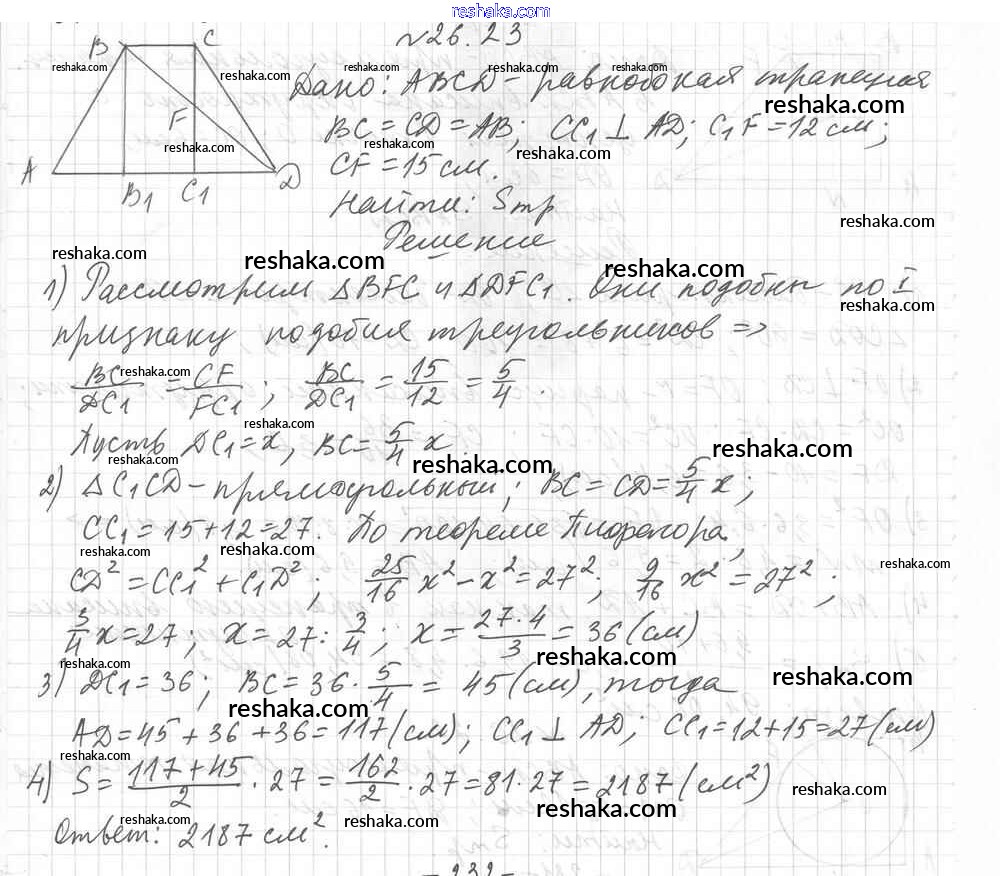 reshaka.com
№26.23
B C
Дано: ABCD - равнобокая трапеция
BC = CD = AB; CC1 ⊥ AD; C1F = 12 см;
F
CF = 15 см.
A B1 C1 D
Найти: Sтр
Решение
1) Рассмотрим ΔBFC и ΔDFC1. Они подобны по I
признаку подобия треугольников =>
BC/DC1 = CF/FC1; BC/DC1 = 15/12 = 5/4.
Пусть DC1 = x, BC = 5/4 x.
2) ΔC1CD - прямоугольный; BC = CD = 5/4 x;
CC1 = 15 + 12 = 27. По теореме Пифагора,
CD² = CC1² + C1D²; 25/16 x² - x² = 27²; 9/16 x² = 27²;
3/4 x = 27; x = 27 : 3/4; x = 27·4/3 = 36 (см)
3) DC1 = 36; BC = 36 · 5/4 = 45 (см), тогда
AD = 45 + 36 + 36 = 117 (см); CC1 ⊥ AD; CC1 = 12 + 15 = 27 (см)
4) S = 117+45/2 · 27 = 162/2 · 27 = 81 · 27 = 2187 (см²)
Ответ: 2187 см².
- 232 -